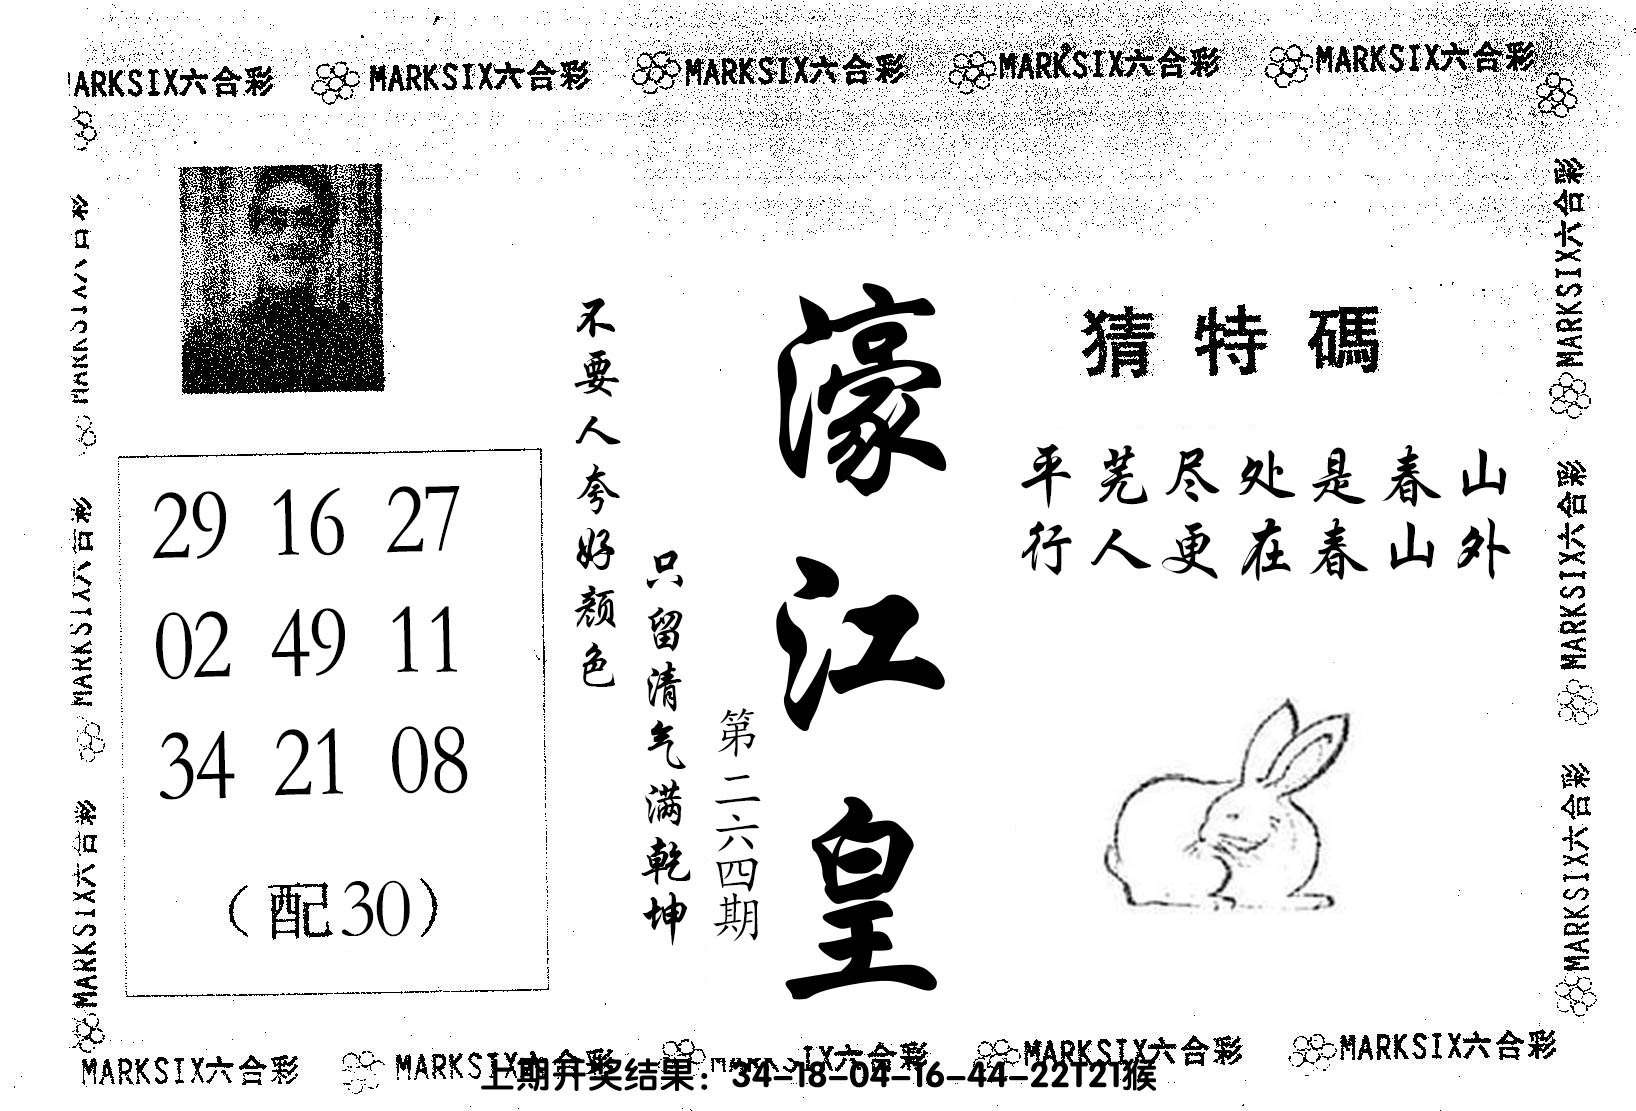 MARKSIX六合彩 MARKSIX六合彩 MARKSIX六合彩 MARKSIX六合彩 MARKSIX六合彩
猜特碼
平芜尽处是春山
行人更在春山外
濠江皇
第二六四期
不要人夸好颜色
只留清气满乾坤
29 16 27
02 49 11
34 21 08
(配30)
MARKSIX六合彩
MARKSIX六合彩
MARKSIX六合彩
MARKSIX六合彩
MARKSIX六合彩
MARKSIX六合彩
MARKSIX六合彩 MARKSIX六合彩 MARKSIX六合彩 MARKSIX六合彩 MARKSIX六合彩
上期开奖结果：34-18-04-16-44-22T21猴